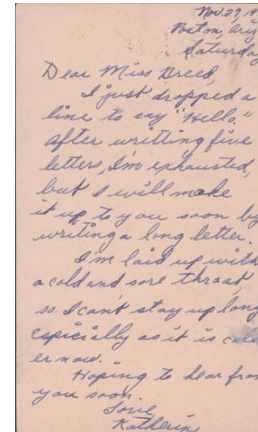 Nov. 27, 19
Poston, Ariz
Saturday
Dear Miss Breed,
I just dropped a
line to say "Hello."
After writting five
letters, I'm exhausted,
but I will make
it up to you soon by
writing a long letter.
I'm laid up with
a cold and sore throat
so I can't stay up long
espicially as it is cold
er now.
Hoping to hear from
you soon.
Love,
Katherine